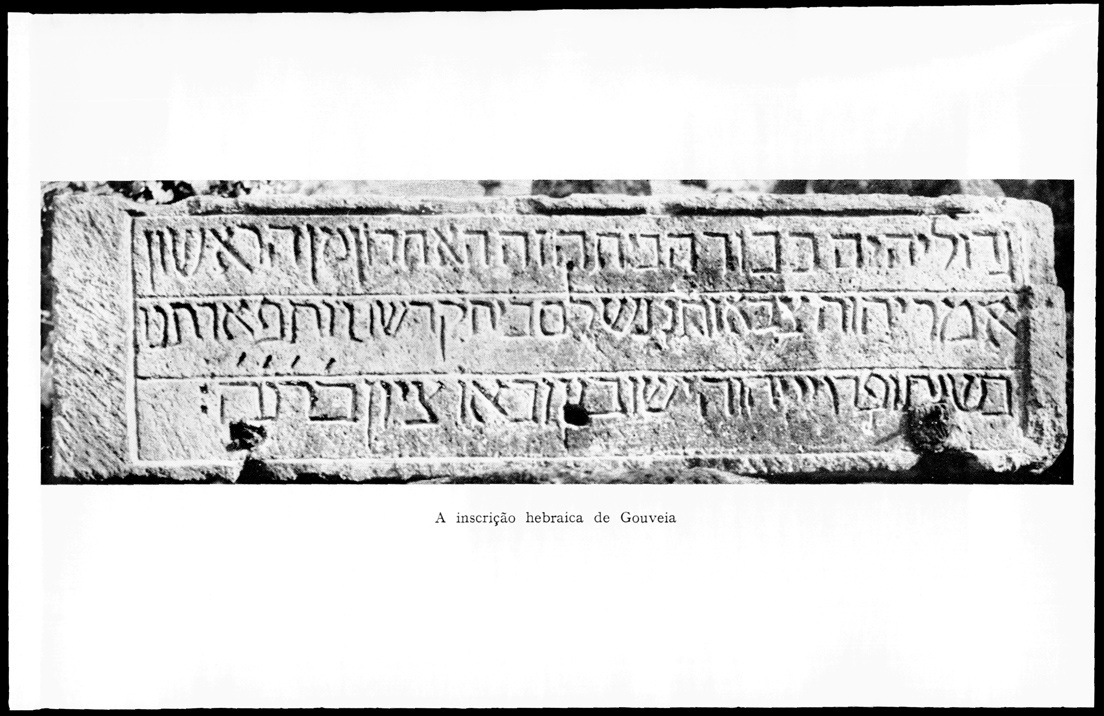 גדול יהיה כבוד הבית הזה האחרון מן הראשון
אמר יהוה צבאות נשלם בית קדשנו ותפארתנו
בשנת ופדויי יהוה ישובון ובאו ציון ברנה :
A inscrição hebraica de Gouveia